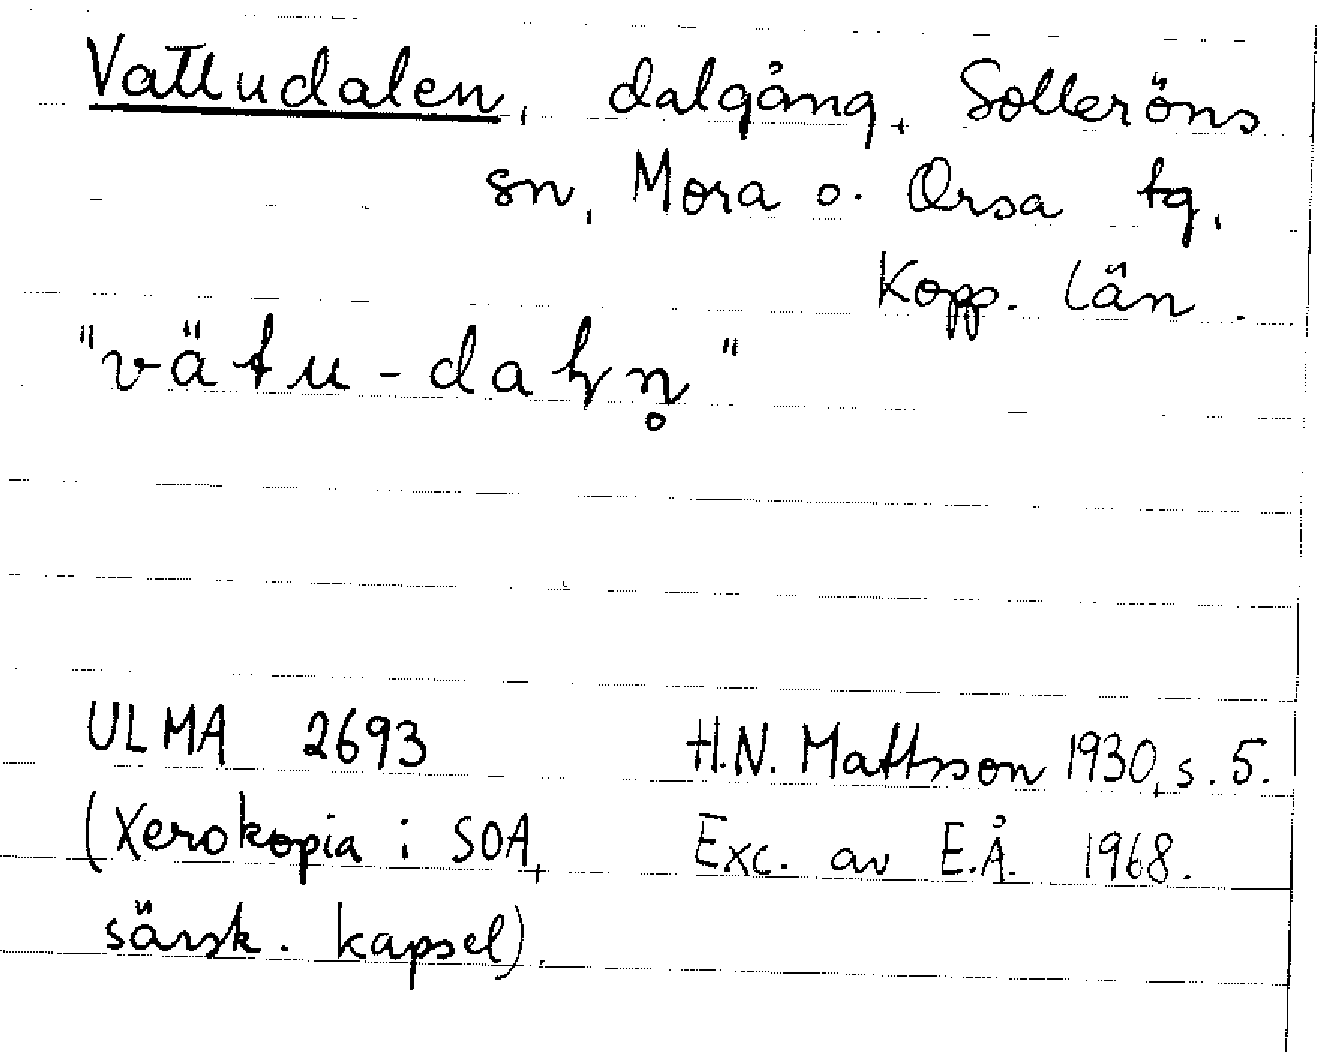 Vattudalen, dalgång, Solleröns
sn, Mora o. Orsa tg,
Kopp. län.
"vätu-daɽn̥"
ULMA 2693 H.N. Mattsson 1930, s. 5.
(Xerokopia i SOA, Exc. av E.Å. 1968.
särsk. kapsel).